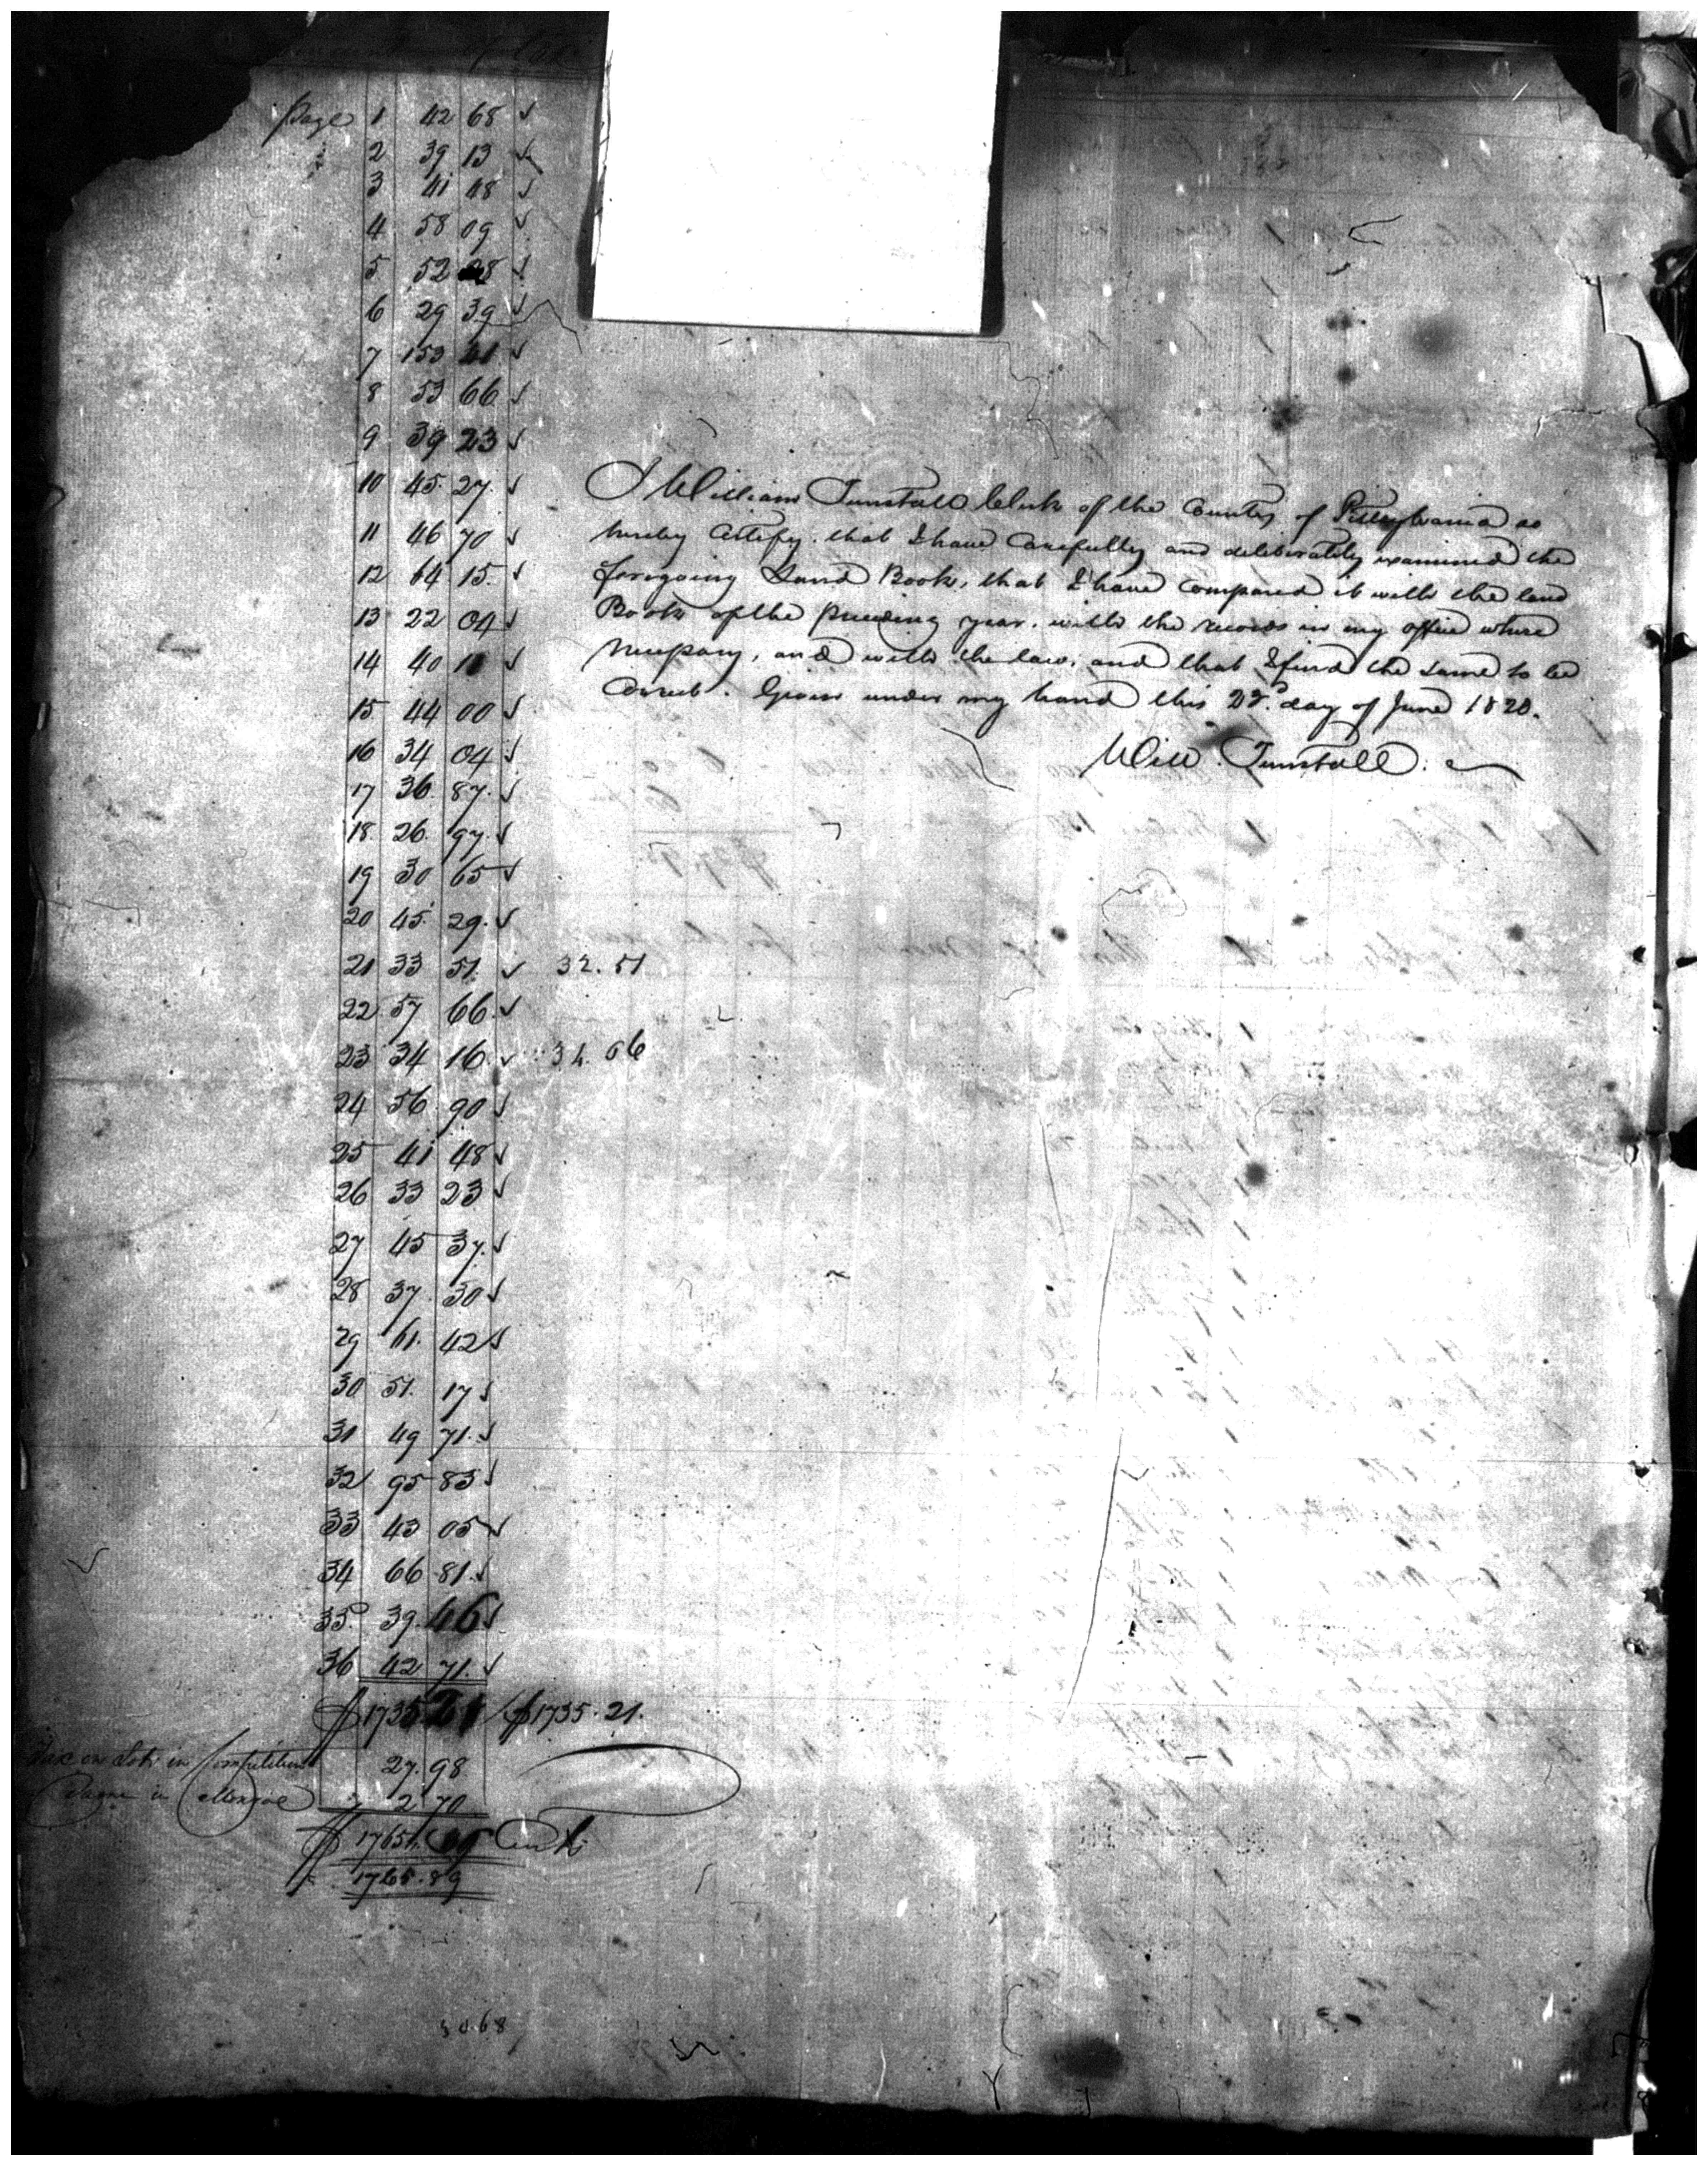 Page 1 42 68 ✓
2 39 13 ✓
3 41 48 ✓
4 58 09 ✓
5 52 ✓
6 29 39 ✓
7 153 ✓
8 53 66 ✓
9 39 23 ✓
10 45. 27. ✓
11 46 70 ✓
12 64 15. ✓
13 22 04 ✓
14 40 ✓
15 44 00 ✓
16 34 04 ✓
17 36. 87. ✓
18. 26. 97. ✓
19 30 65 ✓
20 45. 29. ✓
21 33 51. ✓ 32. 51
22 57 66. ✓
23 34 16. ✓ 34. 66
24 56. 90. ✓
25 41 48 ✓
26 33 23 ✓
27 45 37. ✓
28 37. 30 ✓
29 61. 42 ✓
30 51. 17 ✓
31 49 71. ✓
32 95 83 ✓
33 43 05 ✓
34 66 81. ✓
35. 39. 46 ✓
36 42 71. ✓
$1735 21 $1735. 21.
Tax on Lots in 27. 98
in 2 70
$ 1765. Cents
1765. 89
I William Tunstall Clerk of the County of Pittsylvania do
hereby Certify. that I have Carefully and deliberately examined the
foregoing Land Book, that I have Compared it with the land
Book of the preceding year. with the records in my office where
necessary, and with the law; and that I find the same to be
Correct. Given under my hand this 22d. day of June 1820.
Will. Tunstall.
30.68